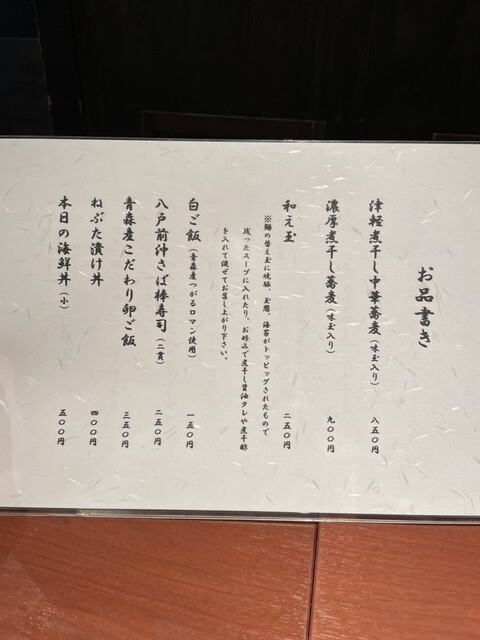 お品書き
津軽煮干し中華蕎麦（味玉入り） 八五〇円
濃厚煮干し蕎麦（味玉入り） 九〇〇円
和え玉 二五〇円
※麺の替え玉に焼豚、玉葱、海苔がトッピングされたもので
残ったスープに入れたり、お好みで煮干し醤油タレや煮干酢
を入れて混ぜてお召し上がり下さい。
白ご飯（青森産つがるロマン使用） 一五〇円
八戸前沖さば棒寿司（二貫） 二五〇円
青森産こだわり卵ご飯 三五〇円
ねぶた漬け丼 四〇〇円
本日の海鮮丼（小） 五〇〇円